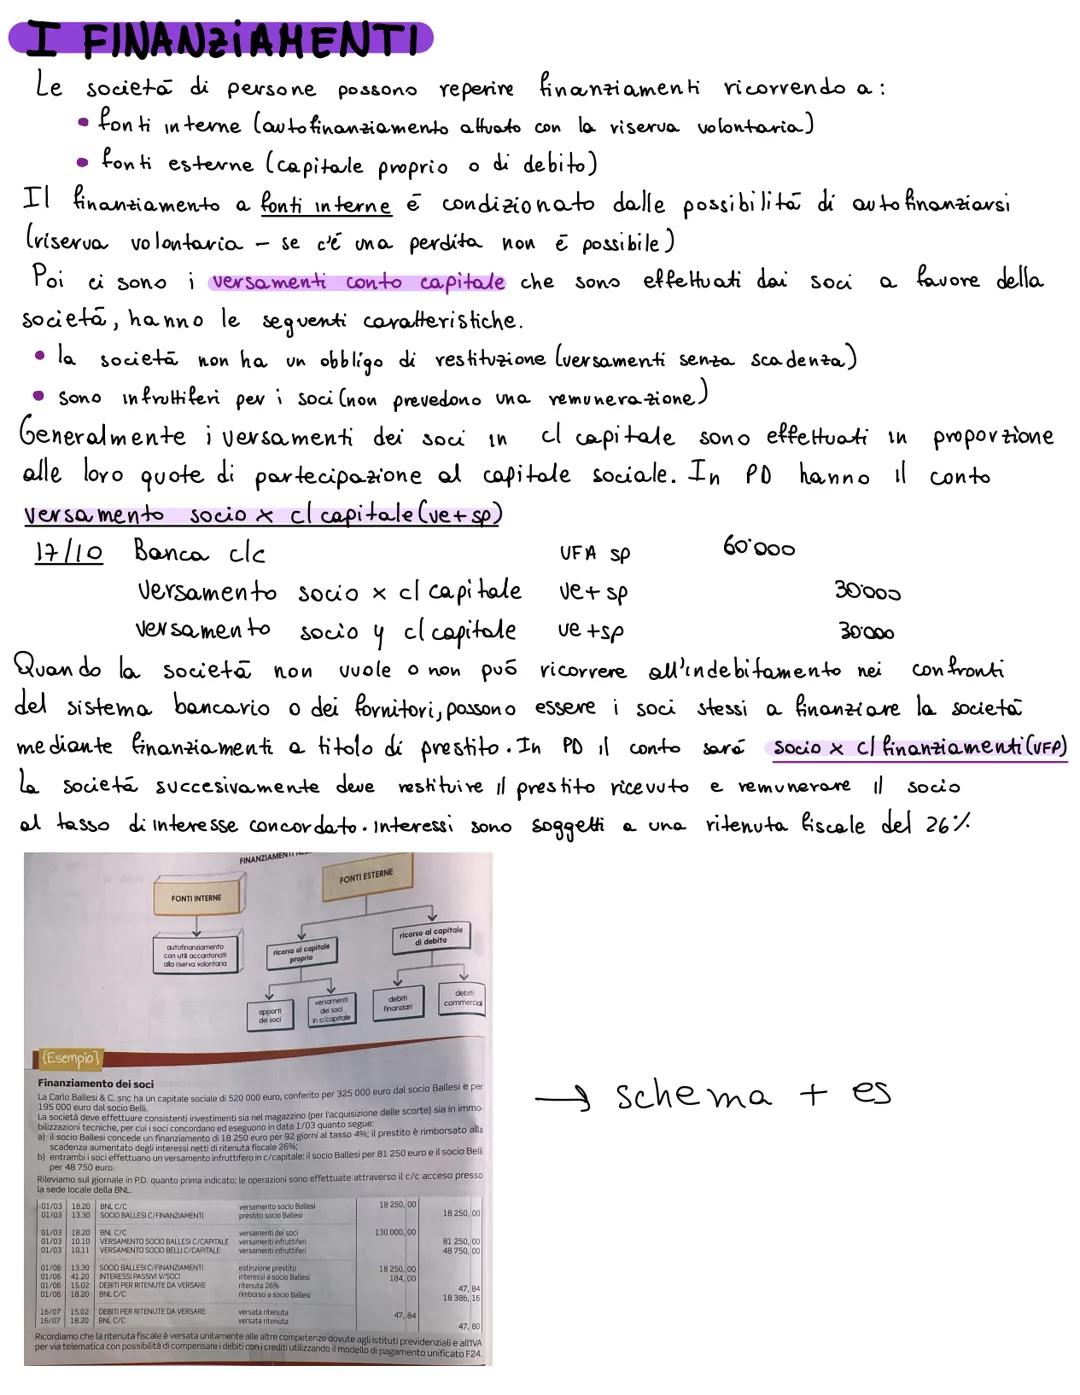 I FINANZIAMENTI
Le società di persone possono reperire finanziamenti ricorrendo a:
• fonti interne (autofinanziamento attuato con la riserva volontaria)
• fonti esterne (capitale proprio o di debito)
Il finanziamento a fonti interne è condizionato dalle possibilità di autofinanziarsi
(riserva volontaria – se c'è una perdita non è possibile)
Poi ci sono i versamenti conto capitale che sono effettuati dai soci a favore della
società, hanno le seguenti caratteristiche.
• la società non ha un obbligo di restituzione (versamenti senza scadenza)
• sono infruttiferi per i soci (non prevedono una remunerazione)
Generalmente i versamenti dei soci in c/ capitale sono effettuati in proporzione
alle loro quote di partecipazione al capitale sociale. In PD hanno il conto
versamento socio x c/ capitale (ve+ sp)
17/10 Banca c/c VFA sp 60'000
versamento socio x c/ capitale ve+ sp 30'000
versamento socio y c/ capitale ve +sp 30'000
Quando la società non vuole o non può ricorrere all'indebitamento nei confronti
del sistema bancario o dei fornitori, possono essere i soci stessi a finanziare la società
mediante finanziamenti a titolo di prestito. In PD il conto sarà socio x c/ finanziamenti (VFP)
La società succesivamente deve restituire il prestito ricevuto e remunerare il socio
al tasso di interesse concordato. Interessi sono soggetti a una ritenuta fiscale del 26%.
FONTI INTERNE
FONTI ESTERNE
autofinanziamento
con utili accantonati
alla riserva volontaria
ricorso al capitale
proprio
ricorso al capitale
di debito
apporti
dei soci
versamenti
dei soci
in c/capitale
debiti
finanziari
debiti
commerciali
→ schema + es
{Esempio}
Finanziamento dei soci
La Carlo Ballesi & C. snc ha un capitale sociale di 520 000 euro, conferito per 325 000 euro dal socio Ballesi e per
195 000 euro dal socio Belli.
La società deve effettuare consistenti investimenti sia nel magazzino (per l'acquisizione delle scorte) sia in immo-
bilizzazioni tecniche, per cui i soci concordano ed eseguono in data 1/03 quanto segue:
a) il socio Ballesi concede un finanziamento di 18 250 euro per 92 giorni al tasso 4%; il prestito è rimborsato alla
scadenza aumentato degli interessi netti di ritenuta fiscale 26%;
b) entrambi i soci effettuano un versamento infruttifero in c/capitale: il socio Ballesi per 81 250 euro e il socio Belli
per 48 750 euro.
Rileviamo sul giornale in P.D. quanto prima indicato; le operazioni sono effettuate attraverso il c/c acceso presso
la sede locale della BNL.
01/03 18.20 BNL C/C versamento socio Ballesi 18 250, 00
01/03 13.30 SOCIO BALLESI C/FINANZIAMENTI prestito socio Ballesi 18 250, 00
01/03 18.20 BNL C/C versamenti dei soci 130 000, 00
01/03 10.10 VERSAMENTO SOCIO BALLESI C/CAPITALE versamenti infruttiferi 81 250, 00
01/03 10.11 VERSAMENTO SOCIO BELLI C/CAPITALE versamenti infruttiferi 48 750, 00
01/06 13.30 SOCIO BALLESI C/FINANZIAMENTI estinzione prestito 18 250, 00
01/06 41.20 INTERESSI PASSIVI V/SOCI interessi a socio Ballesi 184, 00
01/06 15.02 DEBITI PER RITENUTE DA VERSARE ritenuta 26% 47, 84
01/06 18.20 BNL C/C rimborso a socio Ballesi 18 386, 16
16/07 15.02 DEBITI PER RITENUTE DA VERSARE versata ritenuta 47, 84
16/07 18.20 BNL C/C versata ritenuta 47, 80
Ricordiamo che la ritenuta fiscale è versata unitamente alle altre competenze dovute agli Istituti previdenziali e all'IVA
per via telematica con possibilità di compensare i debiti con i crediti utilizzando il modello di pagamento unificato F24.